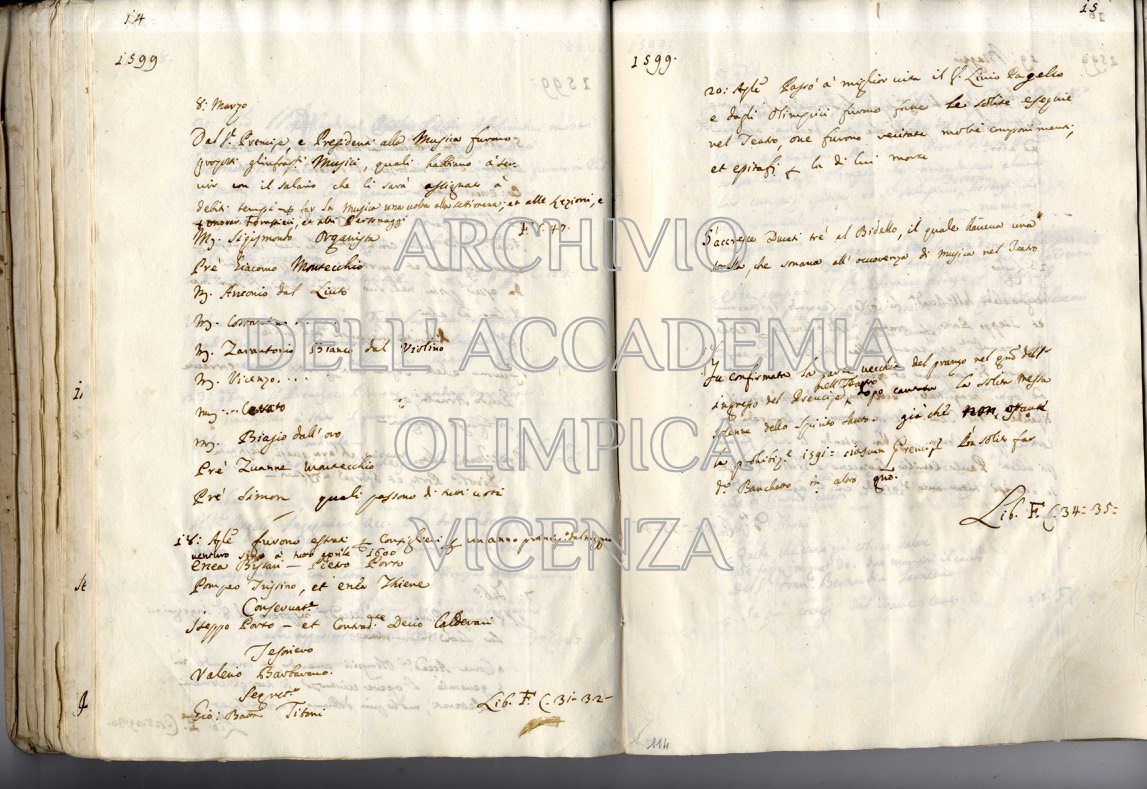 14
1599
8: Marzo
Dal S.r Prencipe, e Presidenti alla Musica furono
proposti gl'infrascti Musici, quali habbiano à ser
vir con il salario che li sarà assignato à
debiti tempi far la Musica una volta alla settimana; et alle Lezioni, e
honorar Forastieri, et altri Personaggi
F. C. 47.
M. Sigismondo Organista
Pré Giacomo Montecchio
M. Antonio dal Liuto
M. Costantino...
M. Zanantonio Bianco dal Violino
M. Vicenzo....
M. ...
M. Biagio dall'oro
Pré Zuanne Montecchio
Pré Simon quali passono di tutti voti
18: Aple furono estrati Consiglieri un anno
venturo sino à tutto Aprile 1600
Enea Bissari — Pietro Porto
Pompeo Trissino, et Enea Thiene
Conservat.ri
Iseppo Porto — et Contrad.te Decio Calderari
Tesoriero
Valerio Barbarano.
Segret.o
Gio: Batt.a Titoni
Lib. F. C. 31- 32-
15
1599.
20: Aple Passò à miglior vita il S. Livio Pagello
e dagli Olimpici furono fatte le solite esequie
nel Teatro, ove furono recitate molte componimenti,
et epitafi la di lui morte
S'accresce Ducati trè al Bidello, il quale teneva una
che sonava all'occorenza di Musica nel Teatro
Fu confirmata la parte vecchia del pranzo nel gno dell'
ingresso del Prencipe nell'Teatro dopo cantata la solita Messa
solenne dello Spirito Santo. già che non ostante
la prohibit.e 1591= ciascun Prencipe solito far
d.o Banchetto in altro gno.
Lib. F. C. 34- 35=
114
ARCHIVIO
DELL'ACCADEMIA
OLIMPICA
VICENZA